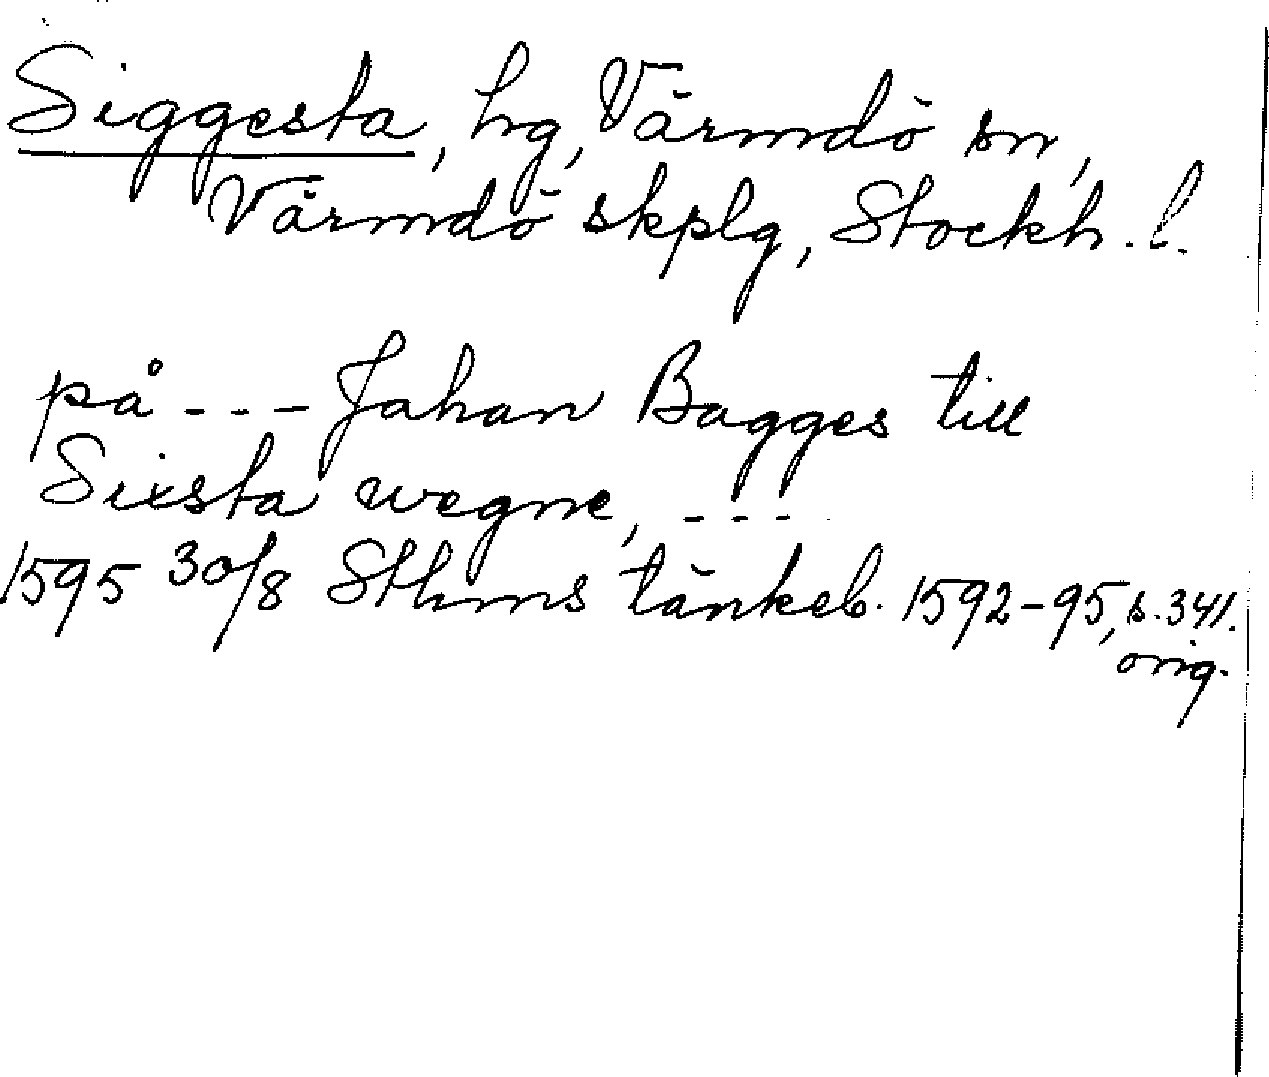 Siggesta, hg, Värmdö sn,
Värmdö skplg, Stockh. l.
på --- Johan Bagges till
Sixsta wegne, ---
1595 30/8 Sthms tänkeb. 1592-95, s. 341.
orig.